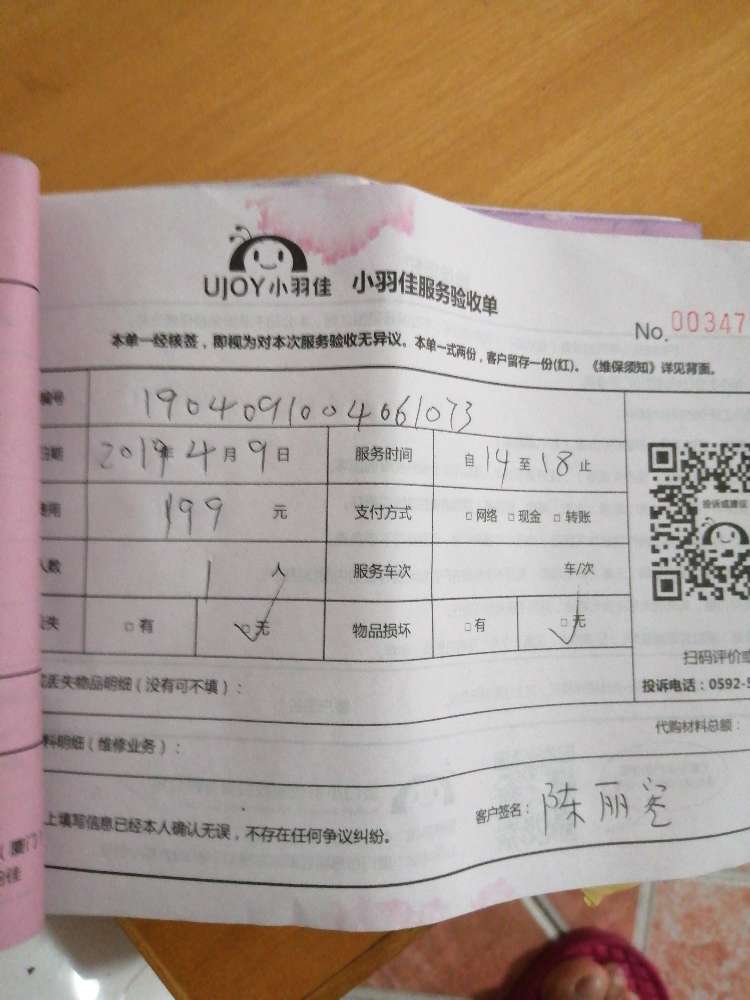 UJOY小羽佳 小羽佳服务验收单
No.00347
本单一经核签，即视为对本次服务验收无异议。本单一式两份，客户留存一份(红)。《维保须知》详见背面。
编号 1904091004061073
日期 2019年4月9日 服务时间 自14至18止
费用 199元 支付方式 □网络 □现金 □转账
人数 1人 服务车次 车/次
丢失 □有 □无 物品损坏 □有 □无
投诉或建议
扫码评价或
投诉电话：0592-5
丢失物品明细（没有可不填）：
代购材料总额：
料明细（维修业务）：
上填写信息已经本人确认无误，不存在任何争议纠纷。
客户签名：陈丽
（厦门
佳